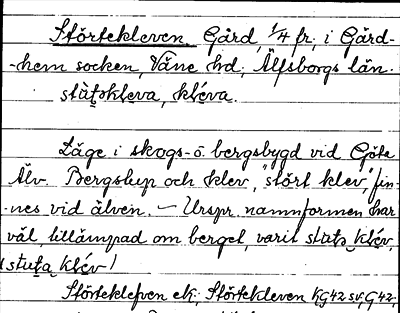 Störtekleven Gård, 1/4 fr, i Gård-
-hem socken, Väne hd, Älfsborgs län.
stùtskleva, kléva.
Läge i skogs- o. bergsbygd vid Göta
Älv. Bergstup och klev, "stört klev", fin-
-nes vid älven. — Urspr. namnformen har
väl, tillämpad om berget, varit stuts klév,
stuta klév!
Störteklefven ek; Störtekleven KG42 sv, G42,